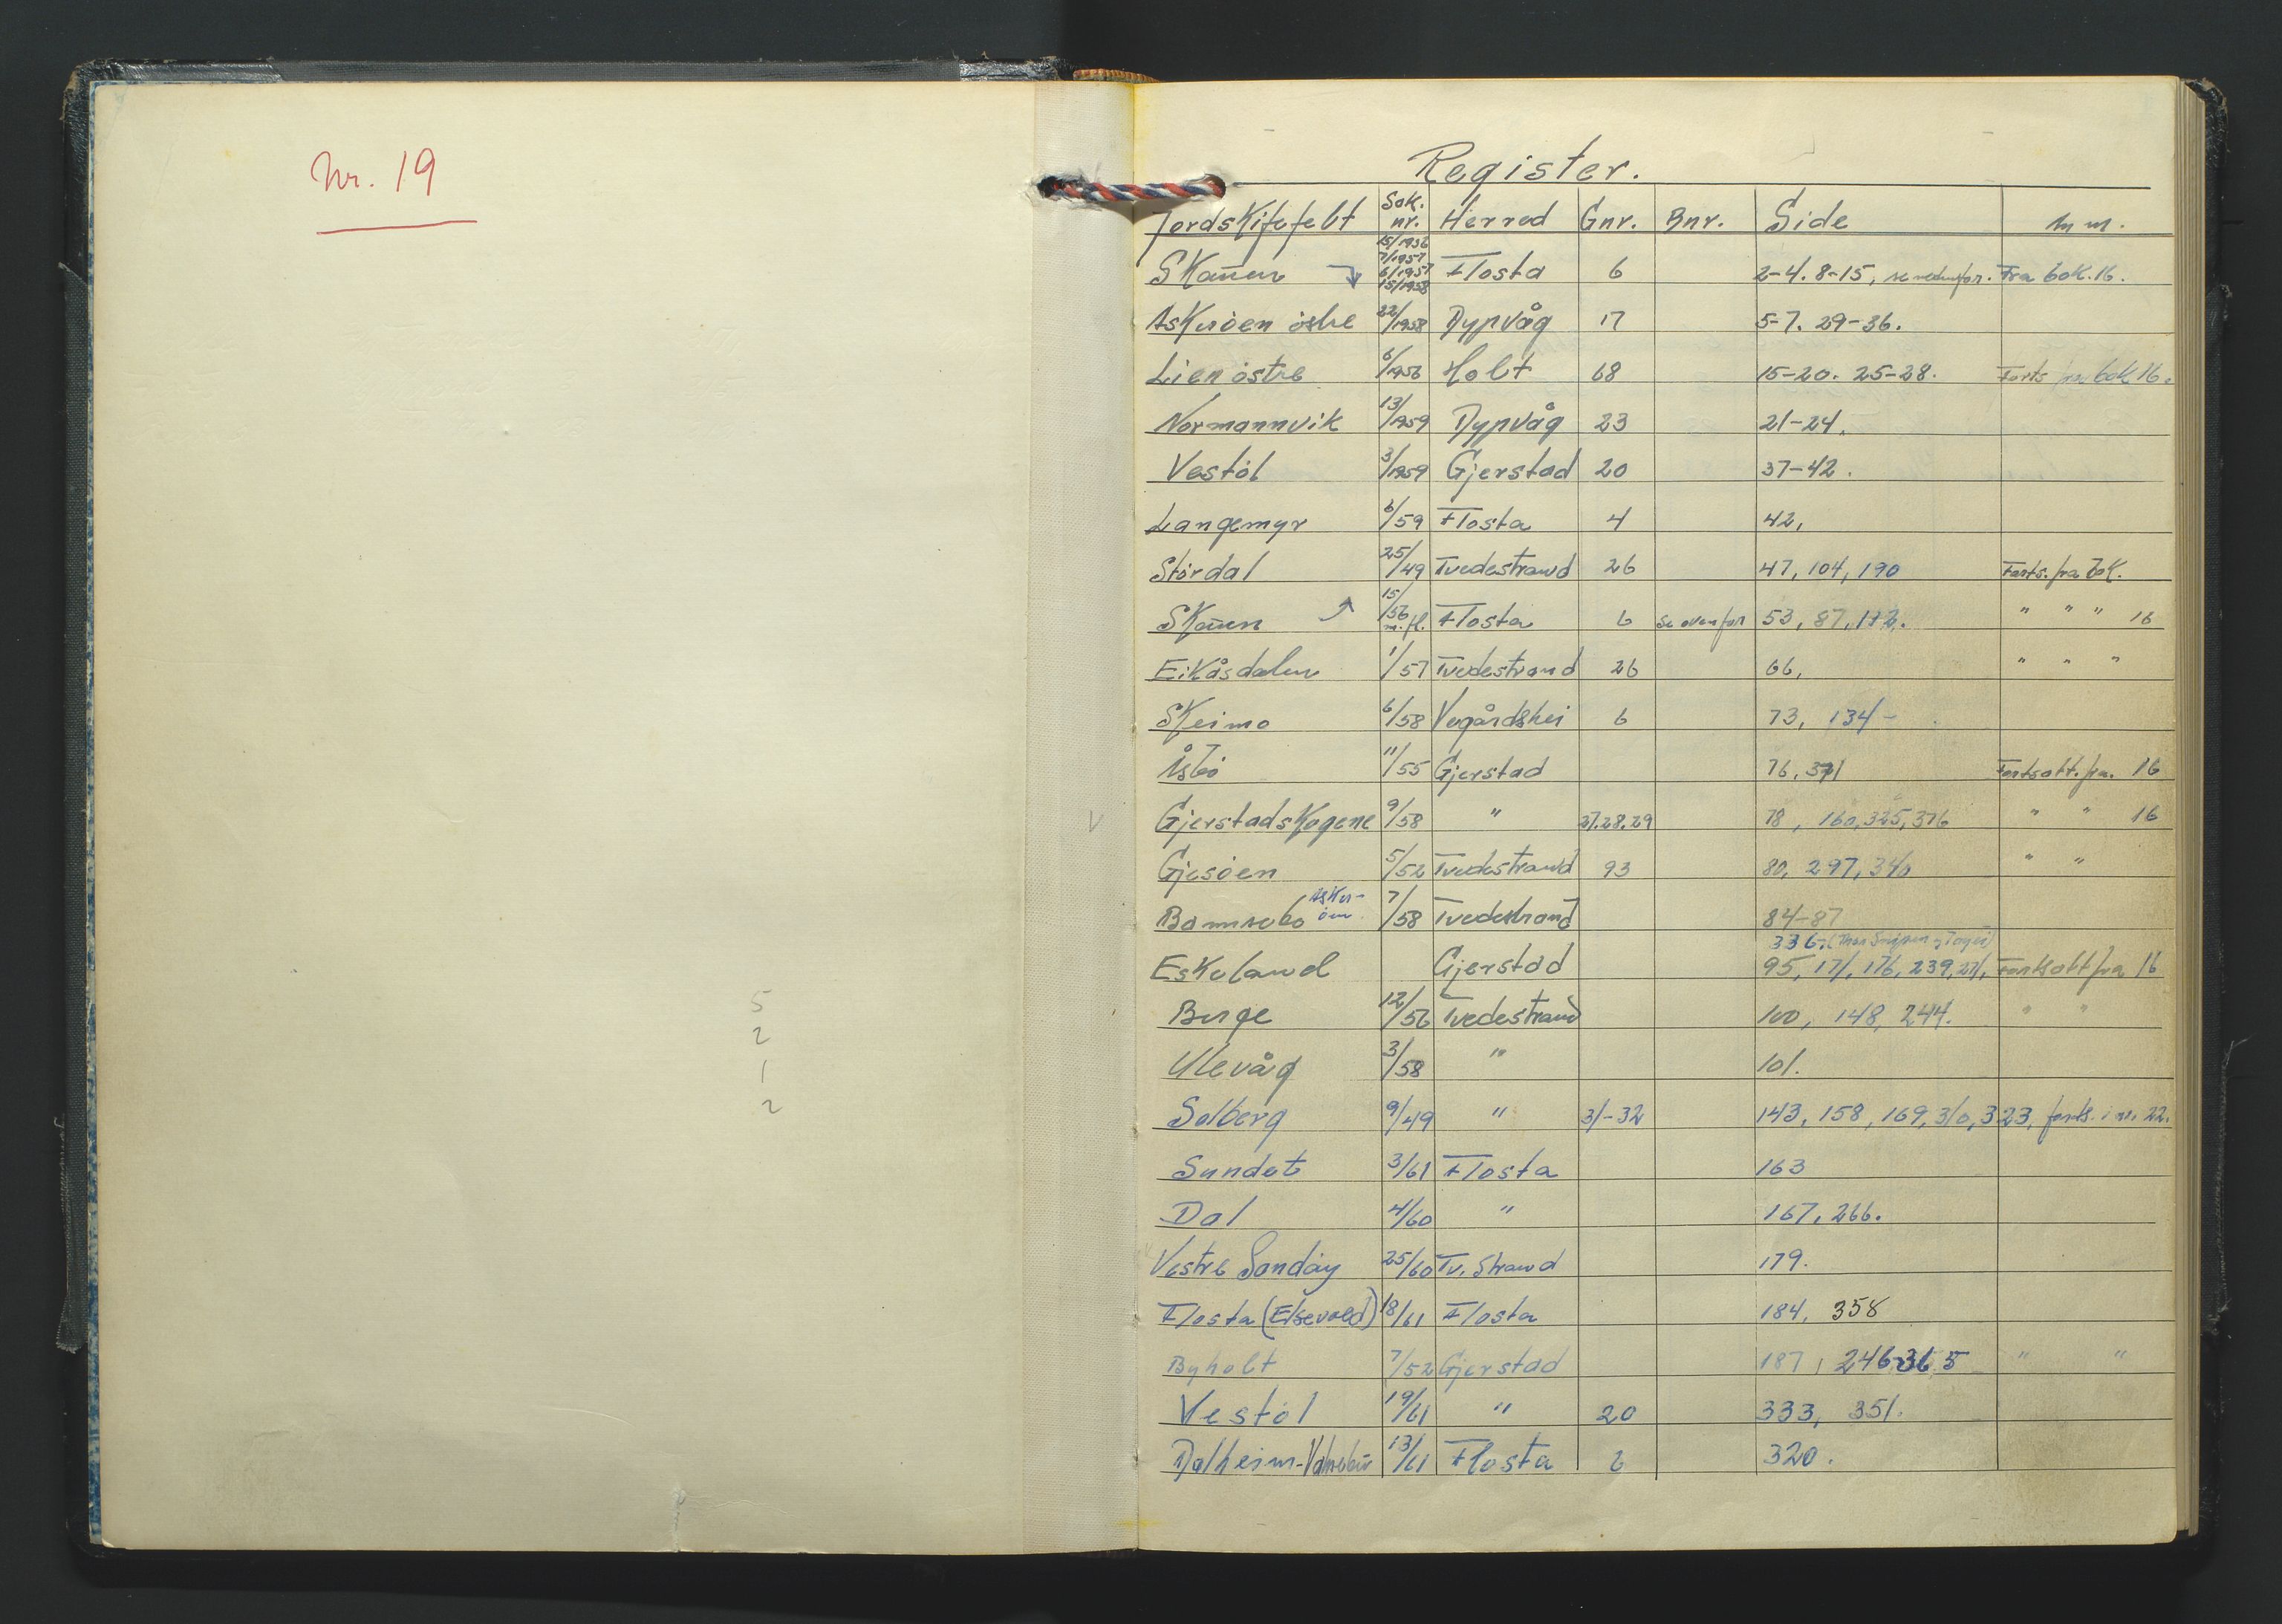 Nr. 19
5
2
1
2
Register.
Jordskiftefelt Sak. nr. Herred Gnr. Bnr. Side M.m.
Skåuen 15/1956 7/1957 6/1957 15/1958 Flosta 6 2-4. 8-15, se nedenfor. Fra bok. 16.
Askeröen östre 22/1958 Dypvåg 17 5-7. 29-36.
Lien östre 6/1956 Holt 68 15-20. 25-28. Forts fra bok 16.
Normannvik 13/1959 Dypvåg 23 21-24.
Vestöl 3/1959 Gjerstad 20 37-42.
Langemyr 6/59 Flosta 4 42,
Stördal 25/49 Tvedestrand 26 47, 104, 190 Forts. fra bok.
Skåuen 15/56 m.fl. Flosta 6 se ovenfor 53, 87, 112. " " " 16
Eikåsdalen 1/57 Tvedestrand 26 66, " " "
Skeimo 6/58 Vegårdshei 6 73, 134-
Åsbö 11/55 Gjerstad 76, Fortsatt. fra. 16
Gjerstadskogene 9/58 " 27.28.29 78, 160, 325, 376 " " 16
Gjesöen 5/52 Tvedestrand 93 80, 297, 340 " "
Asker-
öen 7/58 Tvedestrand 84-87
336,
Eskeland Gjerstad 95, 171, 176, 239, 271, Fortsatt fra 16
Berge 12/56 Tvedestrand 100, 148, 244. " "
Ulevåg 3/58 " 101.
Solberg 9/49 " 31-32 143, 158, 169, 310, 323, forts. i nr. 22.
Sundet 3/61 Flosta 163
Dal 4/60 " 167, 266.
Vestre Sandöy 25/60 Tv. strand 179.
Flosta (Elsevold) 18/61 Flosta 184, 358
Byholt 7/52 Gjerstad 187, 246 365 " "
Vestöl 19/61 " 20 333, 351.
Dalheim- 13/61 Flosta 2 320.